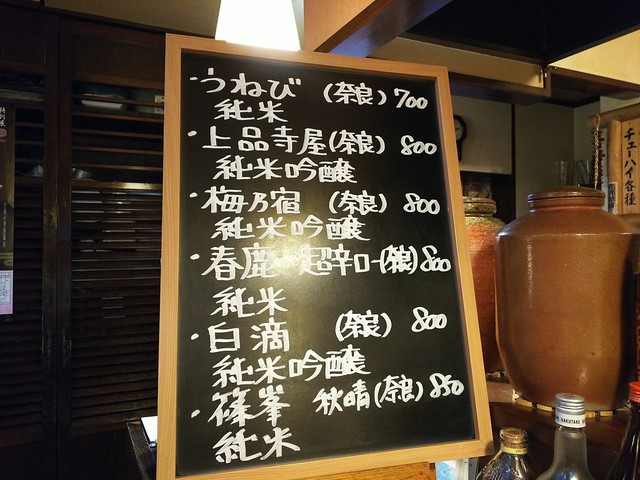 ・うねび (奈良) 700
純米
・上品寺屋(奈良) 800
純米吟醸
・梅乃宿 (奈良) 800
純米吟醸
・春鹿 超辛口(奈良) 800
純米
・白滴 (奈良) 800
純米吟醸
・篠峯 秋晴(奈良) 850
純米
チューハイ各種
HAKUTAKE